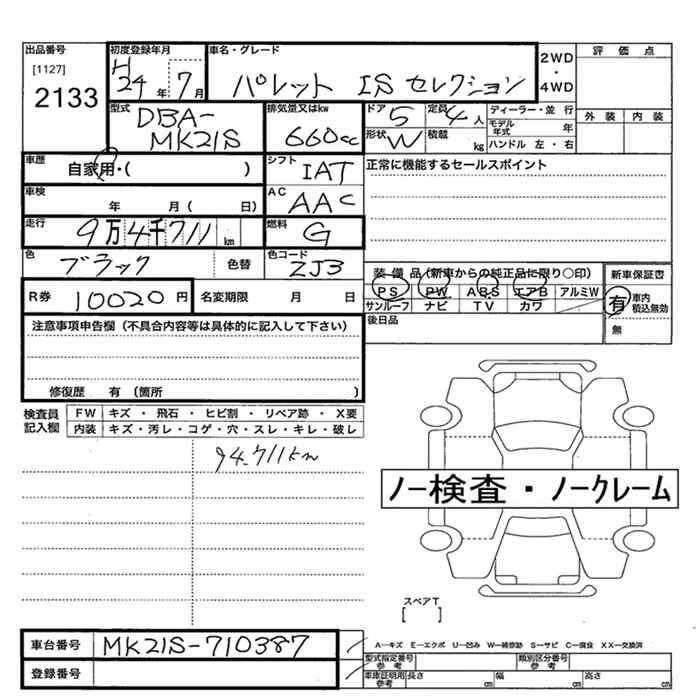 出品番号 初度登録年月 車名・グレード 2WD・4WD 評価点
[1127]
2133
H24年 7月
パレット ISセレクション
型式 DBA-MK21S
排気量又はkw 660cc
ドア 5 定員 4人
形状 W 積載 kg
ディーラー・並行
モデル年式 年
ハンドル 左・右
外装 内装
車歴 自家用・( )
シフト IAT
正常に機能するセールスポイント
車検 年 月( 日)
AC AAC
走行 9万4千711km
燃料 G
色 ブラック 色替
色コード ZJ3
装備品(新車からの純正品に限り○印)
PS PW ABS エアB アルミW
サンルーフ ナビ TV カワ
後日品
新車保証書
有 車内積込無効
無
R券 10020円 名変期限 月 日
注意事項申告欄(不具合内容等は具体的に記入して下さい)
修復歴 有(箇所 )
検査員記入欄
FW キズ・飛石・ヒビ割・リペア跡・X要
内装 キズ・汚レ・コゲ・穴・スレ・キレ・破レ
94.711km
ノー検査・ノークレーム
スペアT
[ ]
車台番号 MK21S-710387
登録番号
A―キズ E―エクボ U―凹み W―補修跡 S―サビ C―腐食 XX―交換済
型式指定番号 参考 類別区分番号 参考
車庫証明用 参考 長さ cm 幅 cm 高さ cm